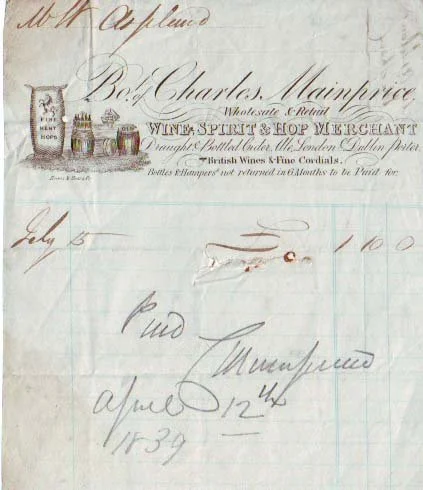 Mr W Aspland
Bot. of Charles Mainprice,
Wholesale & Retail
WINE, SPIRIT & HOP MERCHANT
Draught & Bottled Cyder, Ale, London & Dublin Porter.
British Wines & Fine Cordials.
Bottles & Hampers not returned in 6 Months to be Paid for.
FINE
KENT
HOPS
OLD
July 15
1 10 0
Paid
C Mainprice
April 12th
1839